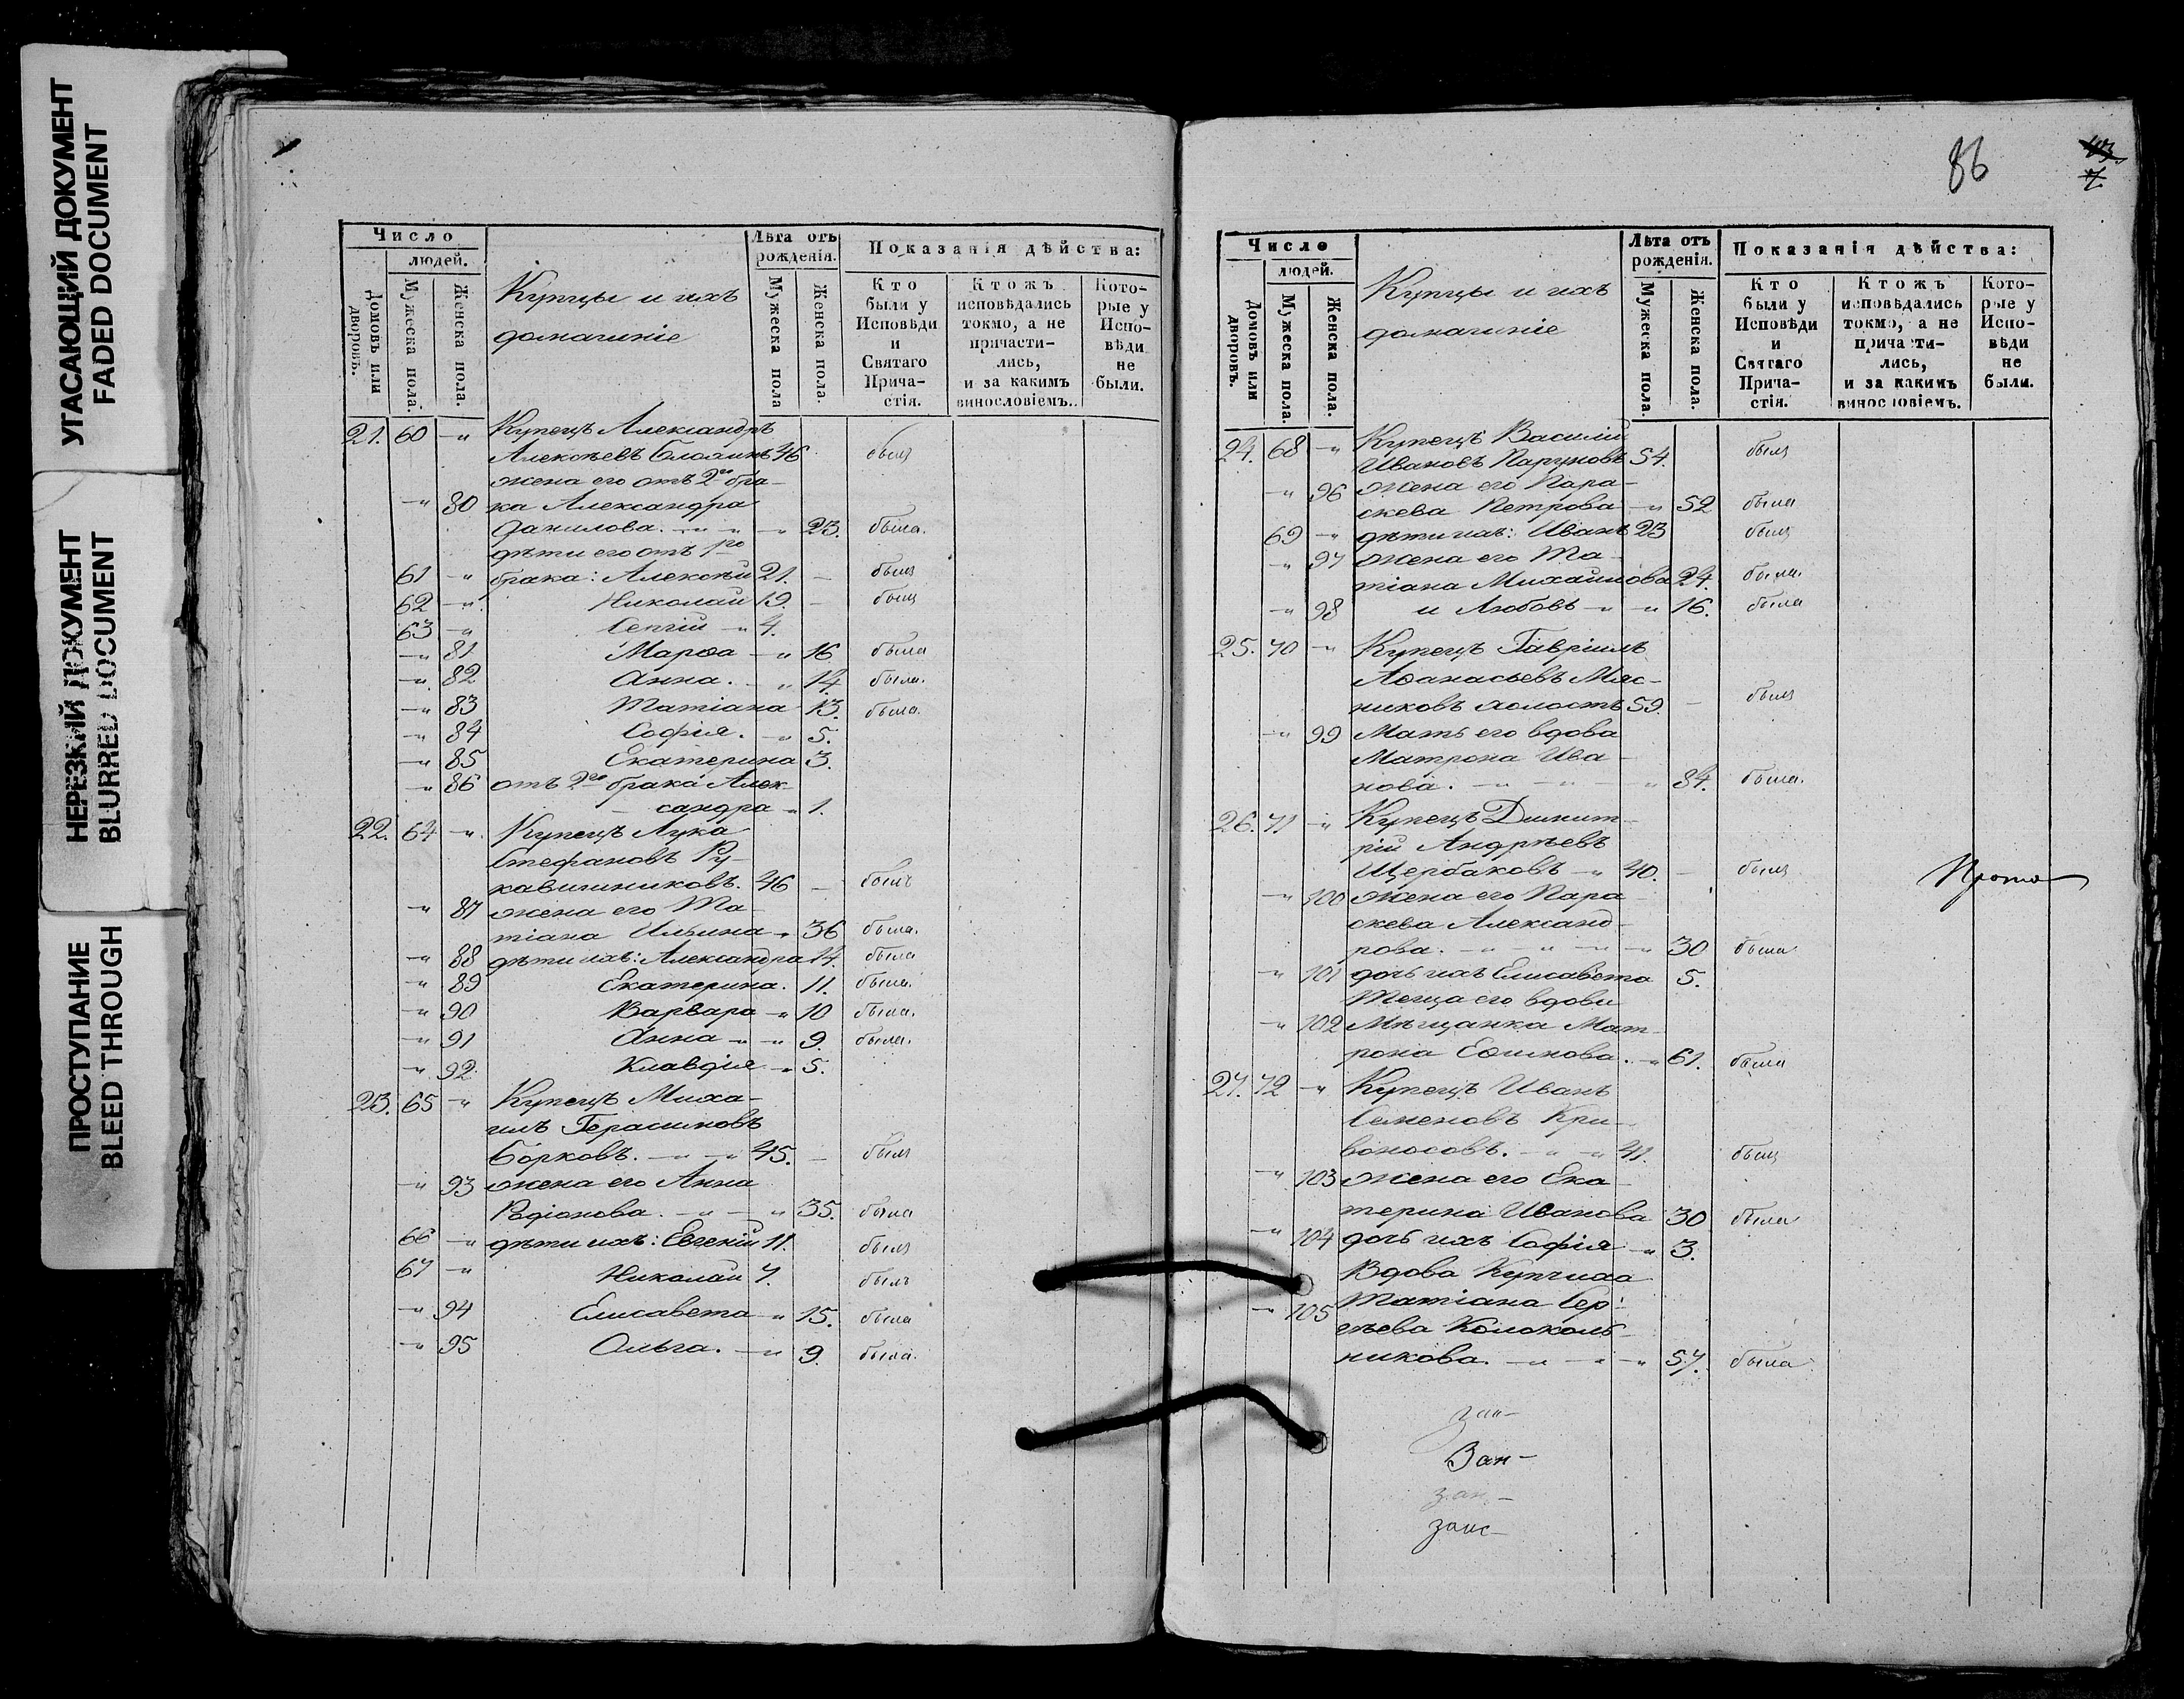 УГАСАЮЩИЙ ДОКУМЕНТ
FADED DOCUMENT
НЕРЕЗКИЙ ДОКУМЕНТ
BLURRED DOCUMENT
ПРОСТУПАНИЕ
BLEED THROUGH
Число
людей.
Домовъ или дворовъ.
Мужеска пола.
Женска пола.
Купцы и ихъ
домашніе
Лѣта отъ рожденія.
Мужеска пола
Женска пола.
Показанія дѣйства:
Кто были у Исповѣди и Святаго Причастія.
Ктожъ исповѣдались токмо, а не причастились, и за какимъ винословіемъ..
Которые у Исповѣди не были.
21. 60 -" Купецъ Александръ
Алексѣевъ 46 былъ
жена его отъ 2го бра-
-" 80 ка Александра
Данилова. -" -" 23. была.
дѣти его отъ 1го
61 -" брака: Алексѣй 21. - былъ
62 -". Николай 19. - былъ
63 -" Сергій -" 4.
-" 81 Марѳа -" 16 была
-". 82 Анна. -" 14. была.
-" 83 Татіана 13. была.
-" 84 Софія. -" 5.
-" 85 Екатерина 3.
-" 86 отъ 2го брака Алек-
сандра -" 1.
22. 64 -". Купецъ Лука
Стефановъ Ру-
кавишниковъ. 46 - былъ
-" 87 жена его Та-
тіана Ильина -" 36 была.
-" 88 дѣти ихъ: Александра 14. была
-" 89 Екатерина. 11. была.
-" 90 Варвара -" 10 была.
-" 91 Анна -" -" 9. была.
-" 92. Клавдія -" 5.
23. 65 -" Купецъ Миха-
илъ Герасимовъ
Борковъ. -" -" 45. - былъ
-" 93 жена его Анна
Родіонова. -" -" 35. была
66 -" дѣти ихъ: Евгеній 11. былъ
67 -" Николай 7. былъ
-" 94 Елисавета -" 15. была
-" 95 Ольга. -" 9. была.
86
Число
людей.
Домовъ или дворовъ.
Мужеска пола.
Женска пола.
Купцы и ихъ
домашніе
Лѣта отъ рожденія.
Мужеска пола.
Женска пола.
Показанія дѣйства:
Кто были у Исповѣди и Святаго Причастія.
Ктожъ исповѣдались токмо, а не причастились, и за какимъ винословіемъ.
Которые у Исповѣди не были.
24. 68 -" Купецъ Василій
Ивановъ Паруновъ 54. былъ
-" 96 жена его Пара-
скева Петрова -" 52 была
69 -" дѣти ихъ: Иванъ 23 былъ
-" 97 жена его Та-
тіана Михайлова 24. была.
-" 98 и Любовь -" -" 16. была
25. 70 -" Купецъ Гавріилъ
Аѳанасьевъ Мяс-
никовъ холостъ 59. - былъ
-" 99 Мать его вдова
Матрона Ива-
нова. -" -" -" 84. была.
26. 71 -" Купецъ Димит-
рій Андрѣевъ
Щербаковъ -" 40. - былъ
-" 100 жена его Пара-
скева Александ-
рова. -" -" -" 30 была
-" 101 дочь ихъ Елисавета 5.
Теща его вдова
-" 102 Мѣщанка Мат-
рона Ефимова. -" 61. была
27. 72 -" Купецъ Иванъ
Семеновъ Кри-
воносовъ. -" -" 41. былъ
-" 103 жена его Ека-
терина Иванова 30 была
-" 104 дочь ихъ Софія -" 3.
Вдова Купчиха
-" 105 Татіана Сер-
гѣева Колоколь-
никова. -" -" -" 57. была
Прото-